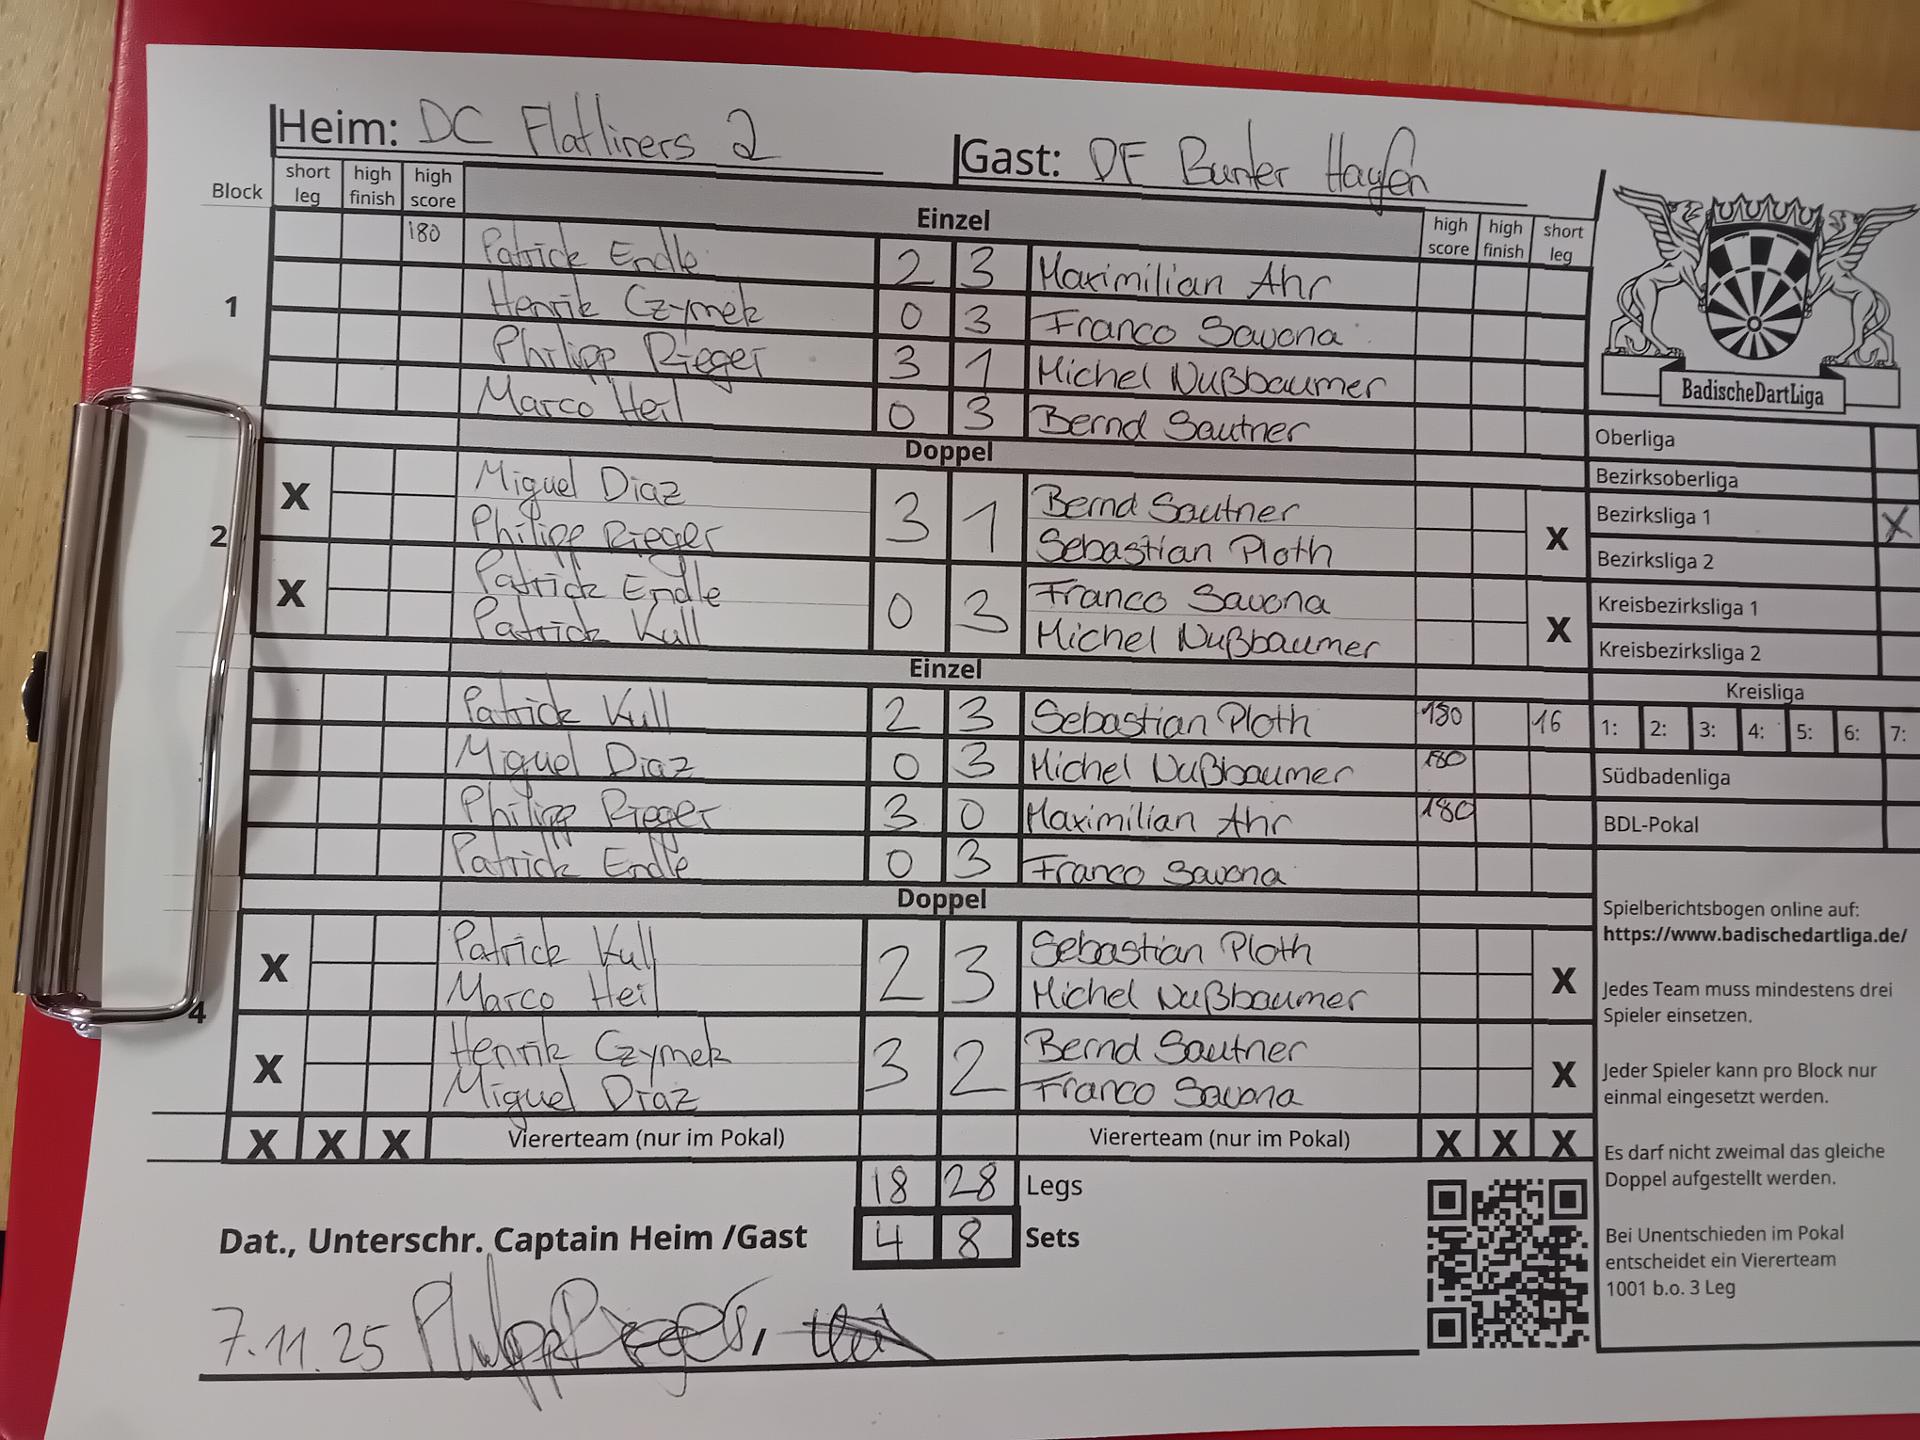 Heim: DC Flatliners 2 Gast: DF Bunter Haufen
Block short leg high finish high score Einzel high score high finish short leg
1
180 Patrick Endle 2 3 Maximilian Ahr
Henrik Czymek 0 3 Franco Savona
Philipp Rieger 3 1 Michel Nußbaumer
Marco Heil 0 3 Bernd Sautner
Doppel
2
X Miguel Diaz 3 1 Bernd Sautner X
Philipp Rieger Sebastian Ploth
X Patrick Endle 0 3 Franco Savona X
Patrick Kull Michel Nußbaumer
Einzel
Patrick Kull 2 3 Sebastian Ploth 180 16
Miguel Diaz 0 3 Michel Nußbaumer 180
Philipp Rieger 3 0 Maximilian Ahr 180
Patrick Endle 0 3 Franco Savona
Doppel
4
X Patrick Kull 2 3 Sebastian Ploth X
Marco Heil Michel Nußbaumer
X Henrik Czymek 3 2 Bernd Sautner X
Miguel Diaz Franco Savona
X X X Viererteam (nur im Pokal) Viererteam (nur im Pokal) X X X
18 28 Legs
4 8 Sets
Dat., Unterschr. Captain Heim /Gast
7.11.25 Philipp Rieger,
BadischeDartLiga
Oberliga
Bezirksoberliga
Bezirksliga 1 X
Bezirksliga 2
Kreisbezirksliga 1
Kreisbezirksliga 2
Kreisliga
1: 2: 3: 4: 5: 6: 7:
Südbadenliga
BDL-Pokal
Spielberichtsbogen online auf:
https://www.badischedartliga.de/
Jedes Team muss mindestens drei
Spieler einsetzen.
Jeder Spieler kann pro Block nur
einmal eingesetzt werden.
Es darf nicht zweimal das gleiche
Doppel aufgestellt werden.
Bei Unentschieden im Pokal
entscheidet ein Viererteam
1001 b.o. 3 Leg